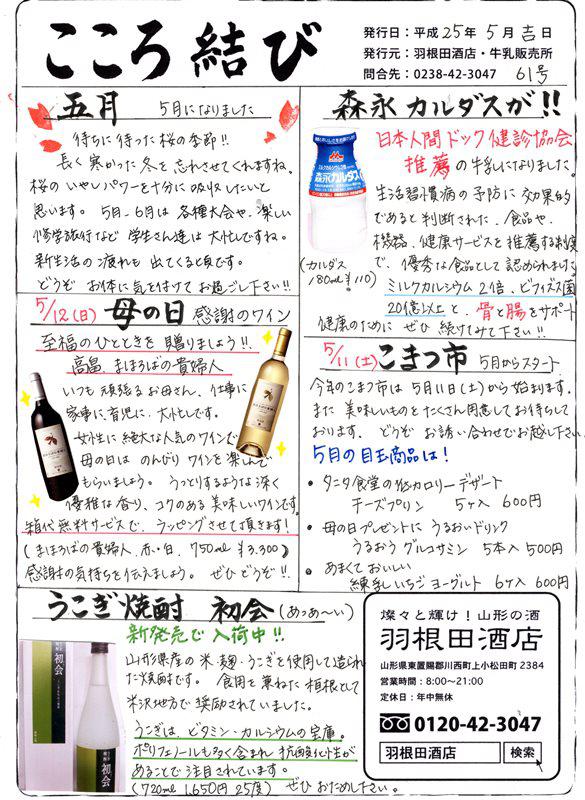 こころ結び
発行日：平成25年5月吉日
発行元：羽根田酒店・牛乳販売所
問合先：0238-42-3047 61号
五月 5月になりました
待ちに待った桜の季節!!
長く寒かった冬を忘れさせてくれますね。
桜のいやしパワーを十分に吸収したいと
思います。5月、6月は各種大会や、楽しい
修学旅行など学生さん達は大忙しですね。
新生活の疲れも出てくる頃です。
どうぞお体に気を付けてお過ごし下さい!!
森永カルダスが!!
日本人間ドック健診協会
推薦の牛乳になりました。
生活習慣病の予防に効果的
であると判断された、食品や、
機器、健康サービスを推薦する制度
で、優秀な食品として認められました
ミルクカルシウム2倍、ビフィズス菌
20億以上と、骨と腸をサポート
健康のためにぜひ続けてみて下さい!!
森永カルダス
(カルダス
180ml ¥110)
5/12(日) 母の日 感謝のワイン
至福のひとときを贈りましょう!!
高畠、まほろばの貴婦人
いつも頑張るお母さん、仕事に
家事に育児に、大忙しです。
女性に絶大な人気のワインで
母の日は、のんびりワインを楽しんで
もらいましょう。うっとりするような深く
優雅な香り、コクのある美味しいワインです。
箱代無料サービスで、ラッピングさせて頂きます!
(まほろばの貴婦人、赤・白、750ml ¥3.300)
感謝の気持ちを伝えましょう。ぜひどうぞ!!
5/11(土) こまつ市 5月からスタート
今年のこまつ市は5月11日(土)から始まります。
また美味しいものをたくさん用意してお待ちして
おります。どうぞお誘い合わせでお越し下さい。
5月の目玉商品は!
・タニタ食堂の低カロリーデザート
チーズプリン 5ヶ入 600円
・母の日プレゼントにうるおいドリンク
うるおうグルコサミン 5本入 500円
・あまくておいしい
練乳いちごヨーグルト 6ヶ入 600円
うこぎ焼酎 初会(あっあ〜い)
新発売で入荷中!!
山形県産の米・麹・うこぎを使用して造られ
た焼酎です。食用を兼ねた垣根として
米沢地方で奨励されていました。
うこぎは、ビタミン・カルシウムの宝庫。
ポリフェノールも多く含まれ抗酸化作用が
あることで注目されています。
(720ml 1,650円 25度) ぜひおためし下さい。
初会
初会
燦々と輝け！山形の酒
羽根田酒店
山形県東置賜郡川西町上小松田町2384
営業時間：8:00〜21:00
定休日：年中無休
0120-42-3047
羽根田酒店 検索